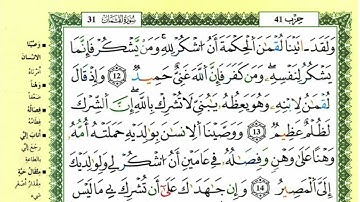 حزب 41 سورة لقمان 31
وَلَقَدْ ءَاتَيْنَا لُقْمَٰنَ ٱلْحِكْمَةَ أَنُ ٱشْكُرْ لِلهِ وَمَنْ يَّشْكُرْ فَإِنَّمَا
يَشْكُرُ لِنَفْسِهِۦ وَمَن كَفَرَ فَإِنَّ ٱللَّهَ غَنِىٌّ حَمِيدٌ 12 وَإِذْ قَالَ
لُقْمَٰنُ لِٱبْنِهِۦ وَهُوَ يَعِظُهُۥ يَٰبُنَىِّ لَا تُشْرِكْ بِٱللَّهِ إِنَّ ٱلشِّرْكَ
لَظُلْمٌ عَظِيمٌ 13 وَوَصَّيْنَا ٱلْإِنسَٰنَ بِوَٰلِدَيْهِ حَمَلَتْهُ أُمُّهُۥ
وَهْنًا عَلَىٰ وَهْنٍ وَفِصَٰلُهُۥ فِى عَامَيْنِ أَنُ ٱشْكُرْ لِى وَلِوَٰلِدَيْكَ
إِلَىَّ ٱلْمَصِيرُ 14 وَإِن جَٰهَدَٰكَ عَلَىٰٓ أَن تُشْرِكَ بِى مَا لَيْسَ
وَصَّيْنَا
الإنسان
أمرناه
وهنا
ضعفا
فصاله
فطامه
أناب إلي
رجع إلي
بالطاعة
مثقال حبة
مقدار أصغر
شيء